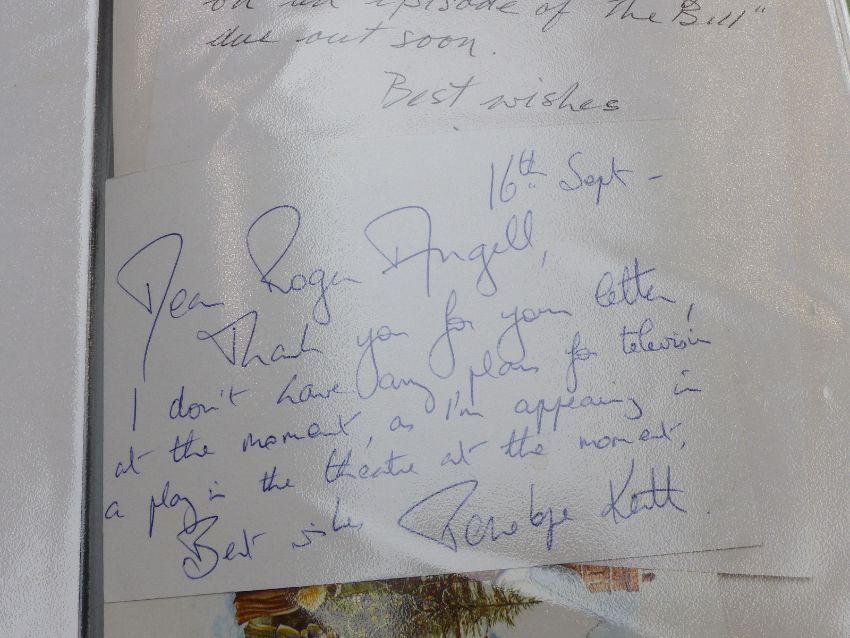 on an episode of "The Bill"
due out soon.
Best wishes
16th Sept -
Dear Roger Angell,
Thank you for your letter,
I don't have any plans for television
at the moment, as I'm appearing in
a play in the theatre at the moment.
Best wishes Penelope Keith.